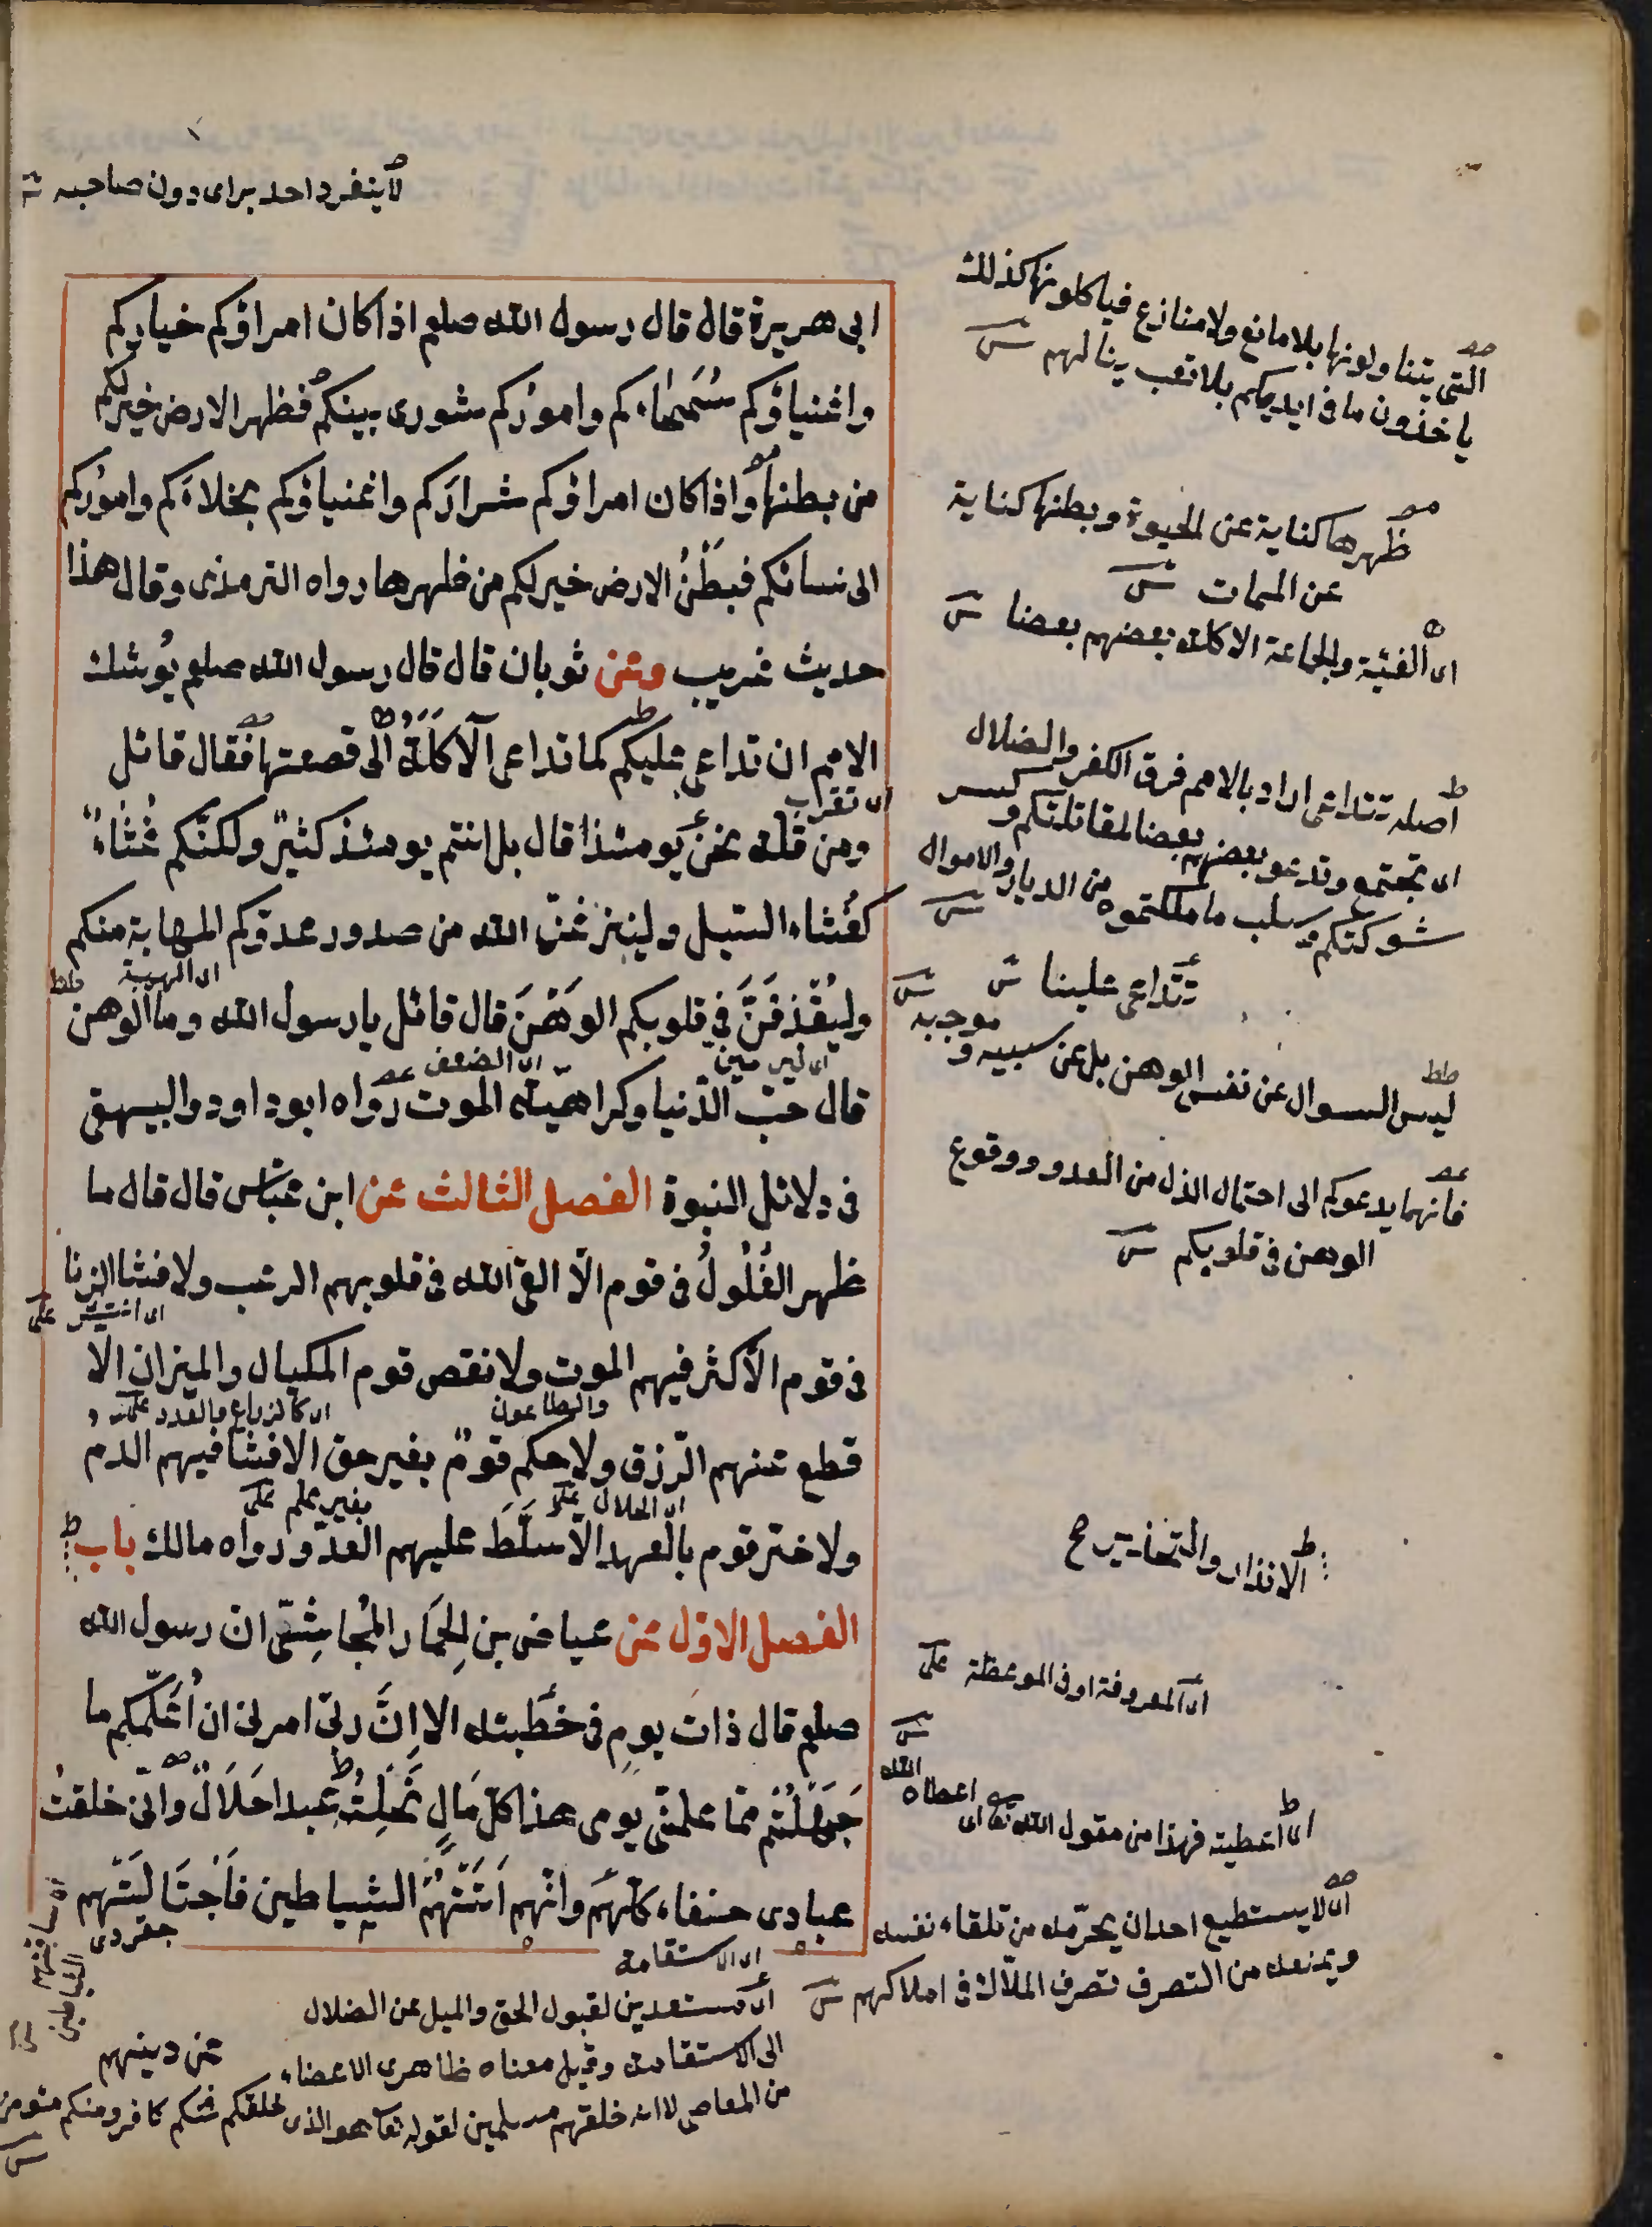 لا ينفرد احد براى دون صاحبه
ابى هريرة قال قال رسول الله صلعم اذا كان امراؤكم خياركم
واغنياؤكم سُمَحَاءكم واموركم شورى بينكم فظهر الارض خير لكم
من بطنها واذا كان امراؤكم شراركم واغنياؤكم بخلاءَكم واموركم
الى نسائكم فبطنُ الارض خير لكم من ظهرها رواه الترمذى وقال هذا
حديث غريب وعن ثوبان قال قال رسول الله صلعم يُوشك
الامم ان تداعى عليكم كما تداعى الآكَلَةُ الى قصعتها فقال قائل
اى تقرب
ومن قلة نحن يومئذ قال بل انتم يومئذ كثيرٌ ولكنّكم غُثَاءٌ
كغُثاء السيل ولينزعَنّ الله من صدور عدوّكم المهابة منكم
اى الهيبة
وليُقْذِفَنَّ فى قلوبكم الوَهْنَ قال قائل يا رسول الله وما الوهن
اى ليرمين اى الضعف
قال حبّ الدّنيا وكراهيّة الموت رواه ابو داود والبيهقى
فى دلائل النبوة الفصل الثالث عن ابن عبّاس قال قال ما
ظهر الغُلُولُ فى قوم الّا القى الله فى قلوبهم الرعب ولا فشا الزنا
فى قوم الّا كثر فيهم الموت ولا نقص قوم المكيال والميزان الّا
والطاعون
قطع عنهم الرّزق ولا حكم قومٌ بغير حق الا فشا فيهم الدمُ
اى الحلال بغير علم
ولا ختر قوم بالعهد الّا سَلَّطَ عليهم العدوّ رواه مالك باب
الفصل الاوّل عن عياض بن الحِمَار المُجاشِعىّ ان رسول الله
صلعم قال ذات يوم فى خطبته الا انَّ ربّى امرنى ان اُعَلِّمكم ما
جَهِلْتُم ممّا علمنى يومى هذا كلّ مَالٍ نَحَلتُه عبدا حَلَالٌ وانّى خلقتُ
عبادى حنفاء كلّهم وانّهم اَتَتْهُمُ الشياطين فَاجْتَالَتْهم
اى الاستقامة
عن دينهم
التى يتناولونها بلا مانع ولا منازع فياكلونها كذلك
ياخذون ما فى ايديكم بلا تعب ينالهم
ظهرها كناية عن الحيوة وبطنها كناية
عن الممات
اى الفئية والجماعة الاكلة بعضهم بعضا
اصله تتداعى اراد بالامم فرق الكفر والضلال
اى تجتمع وتدعو بعضهم بعضا لمقاتلتكم وكسر
شوكتكم وسلب ما ملكتموه من الديار والاموال
تتداعى علينا
ليس السوال عن نفس الوهن بل عن سببه وموجبه
فانهما يدعوكم الى احتمال الذل من العدو ووقوع
الوهن فى قلوبكم
الانذار والتحذير صح
اى المعروفة او فى الموعظة
اى اعطيته فهذا من مقول الله تعالى اى اعطاه الله
اى لا يستطيع احد ان يحرّمه من تلقاء نفسه
ويمنعه من التصرف تصرف الملّاك فى املاكهم
اى مستعدين لقبول الحق والميل عن الضلال
الى الاستقامة وقيل معناه طاهرى الاعضاء
من المعاصى لا انه خلقهم مسلمين لقوله تعا هو الذى خلقكم فمنكم كافر ومنكم مؤمن